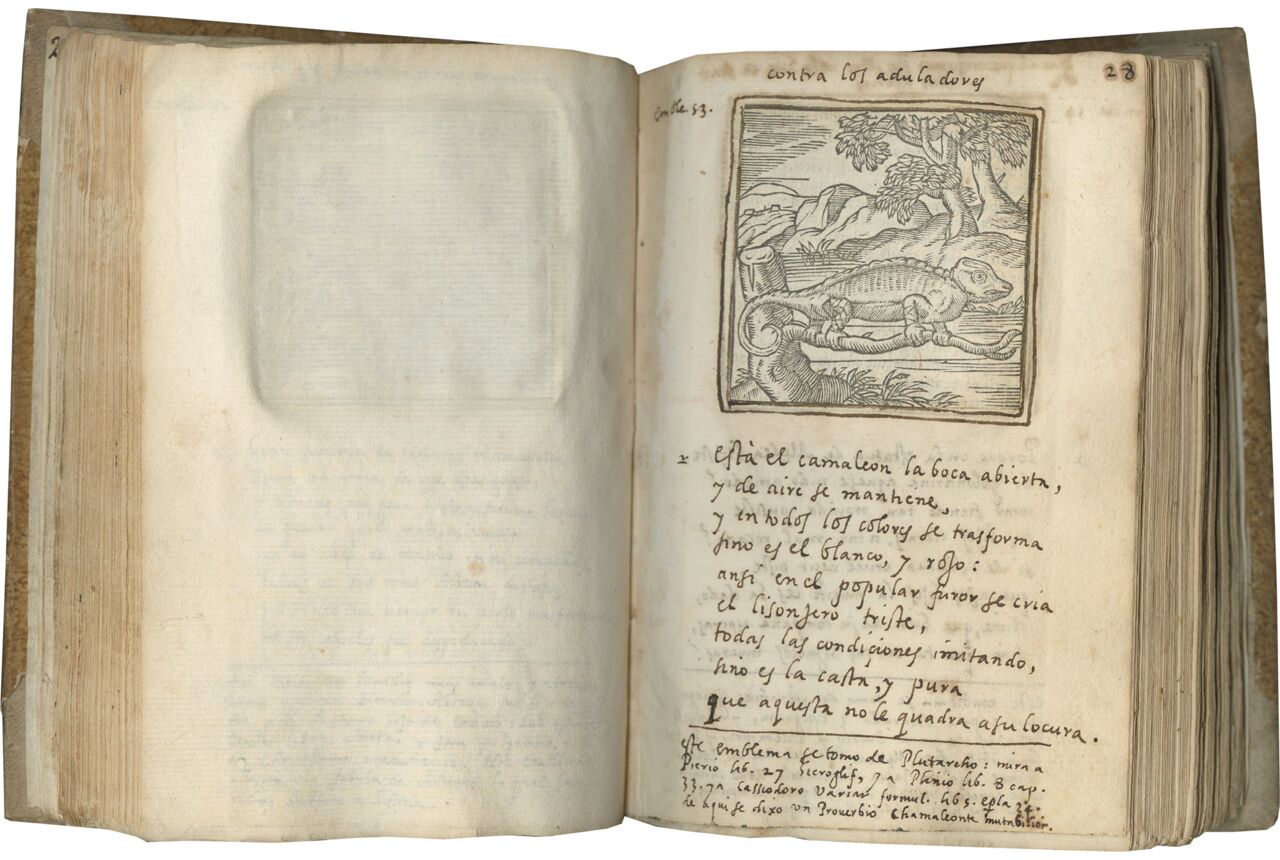 2
contra los aduladores
28
Emble. 53.
Està el camaleon la boca abierta,
y de aire se mantiene,
y en todos los colores se trasforma
sino es el blanco, y rojo:
ansi en el popular furor se cria
el lisonjero triste,
todas las condiçiones imitando,
sino es la casta, y pura
que aquesta no le quadra a su locura.
este emblema se tomo de Plutarcho: mira a
Pierio lib. 27 hieroglif, y a Plinio lib. 8 cap.
33. y a Cassiodoro variar formul. lib 5. epla 34.
de aqui se dixo un Proverbio Chamaleonte mutabilior.